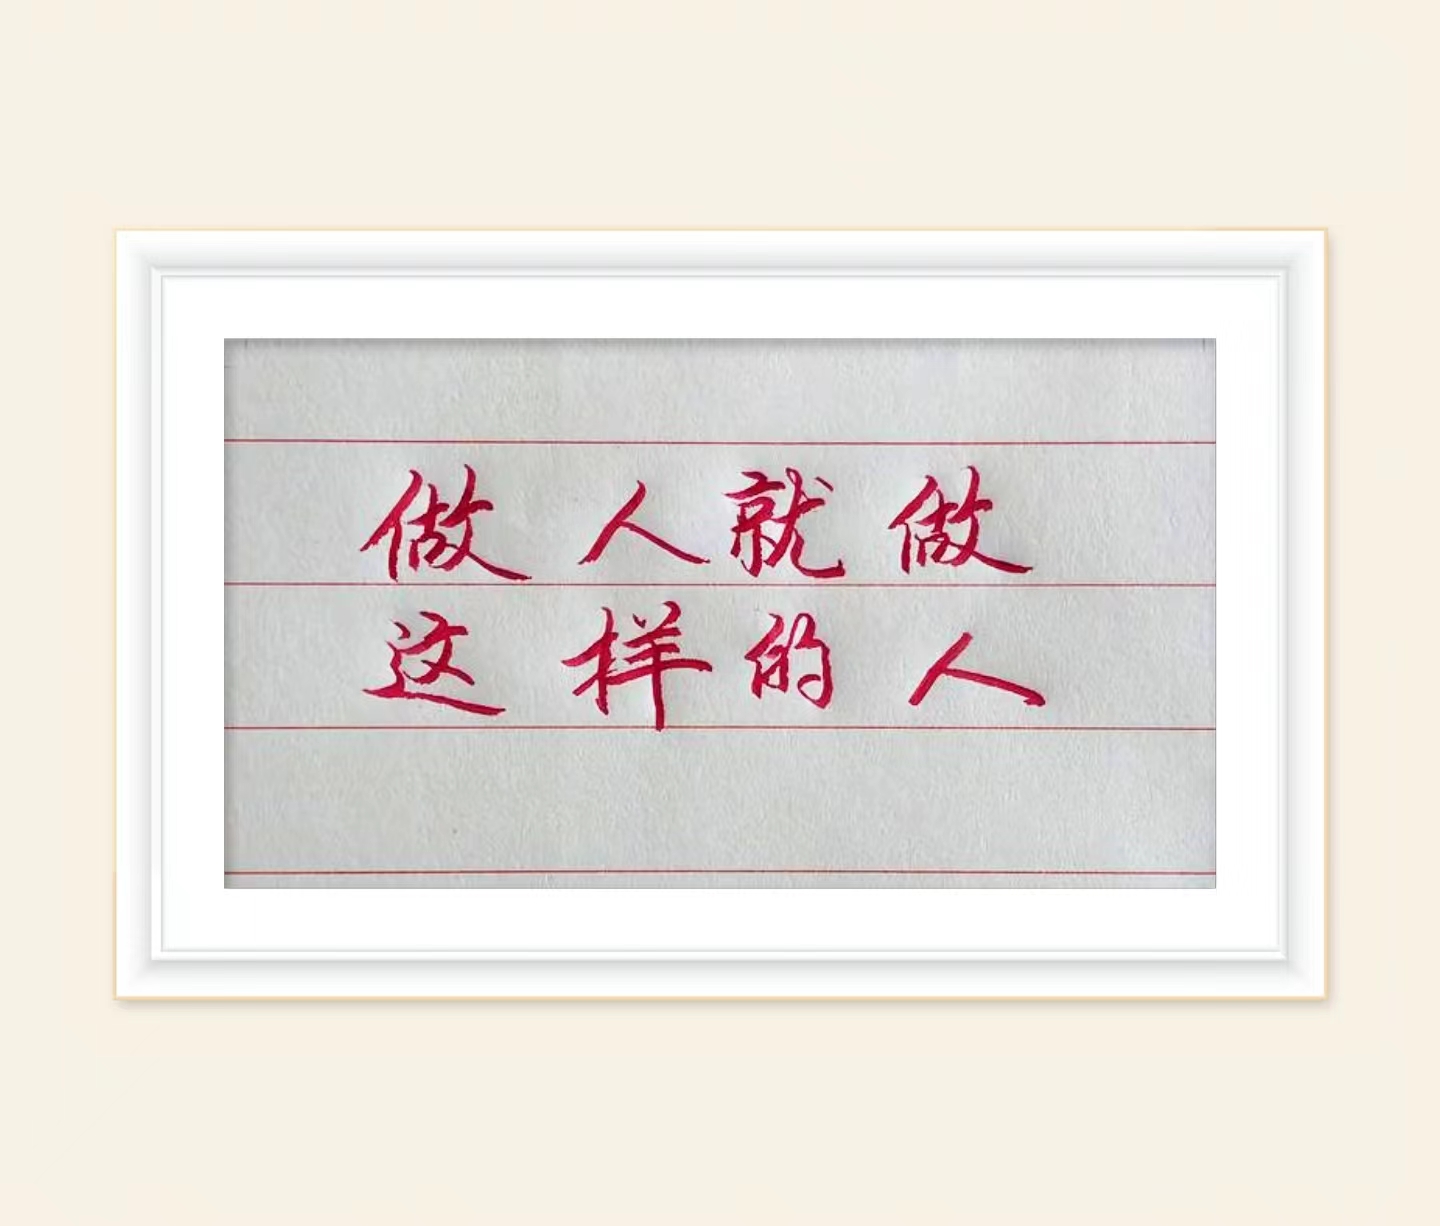 做人就做
这样的人